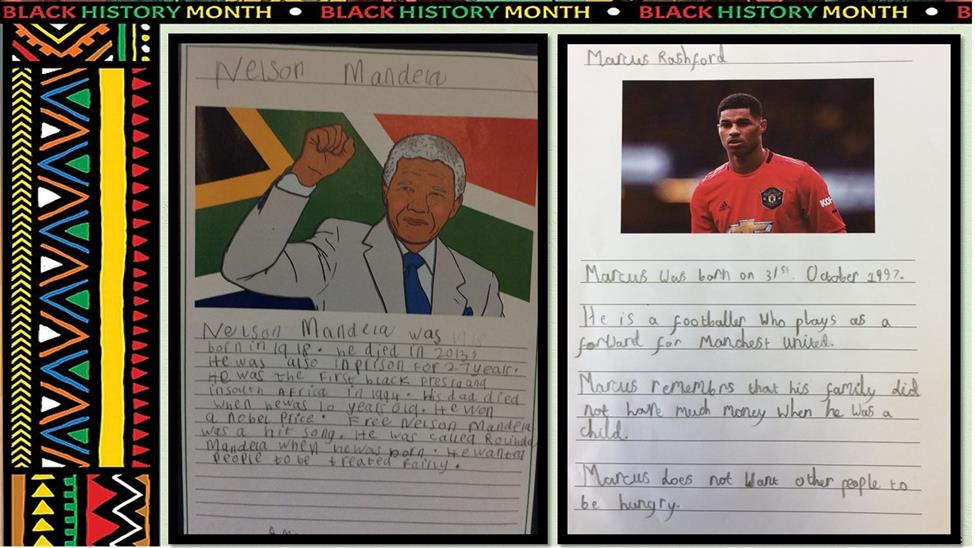 BLACK HISTORY MONTH • BLACK HISTORY MONTH • BLACK HISTORY MONTH • B
Nelson Mandela
Nelson Mandela was
born in 1918. he died in 2013.
He was also in prison for 27 years.
He was the first black
in south Africa in 1994. His dad died
when he was 10 years old. He won
a nobel Price. Free Nelson Mandela
was a hit song. He was called
Mandela when he was born. He wanted
people to be treated fairly.
Marcus Rashford
Marcus was born on 31st October 1997.
He is a footballer who plays as a
forward for Manchest united.
Marcus remembrs that his family did
not have much money when he was a
child.
Marcus does not want other people to
be hungry.